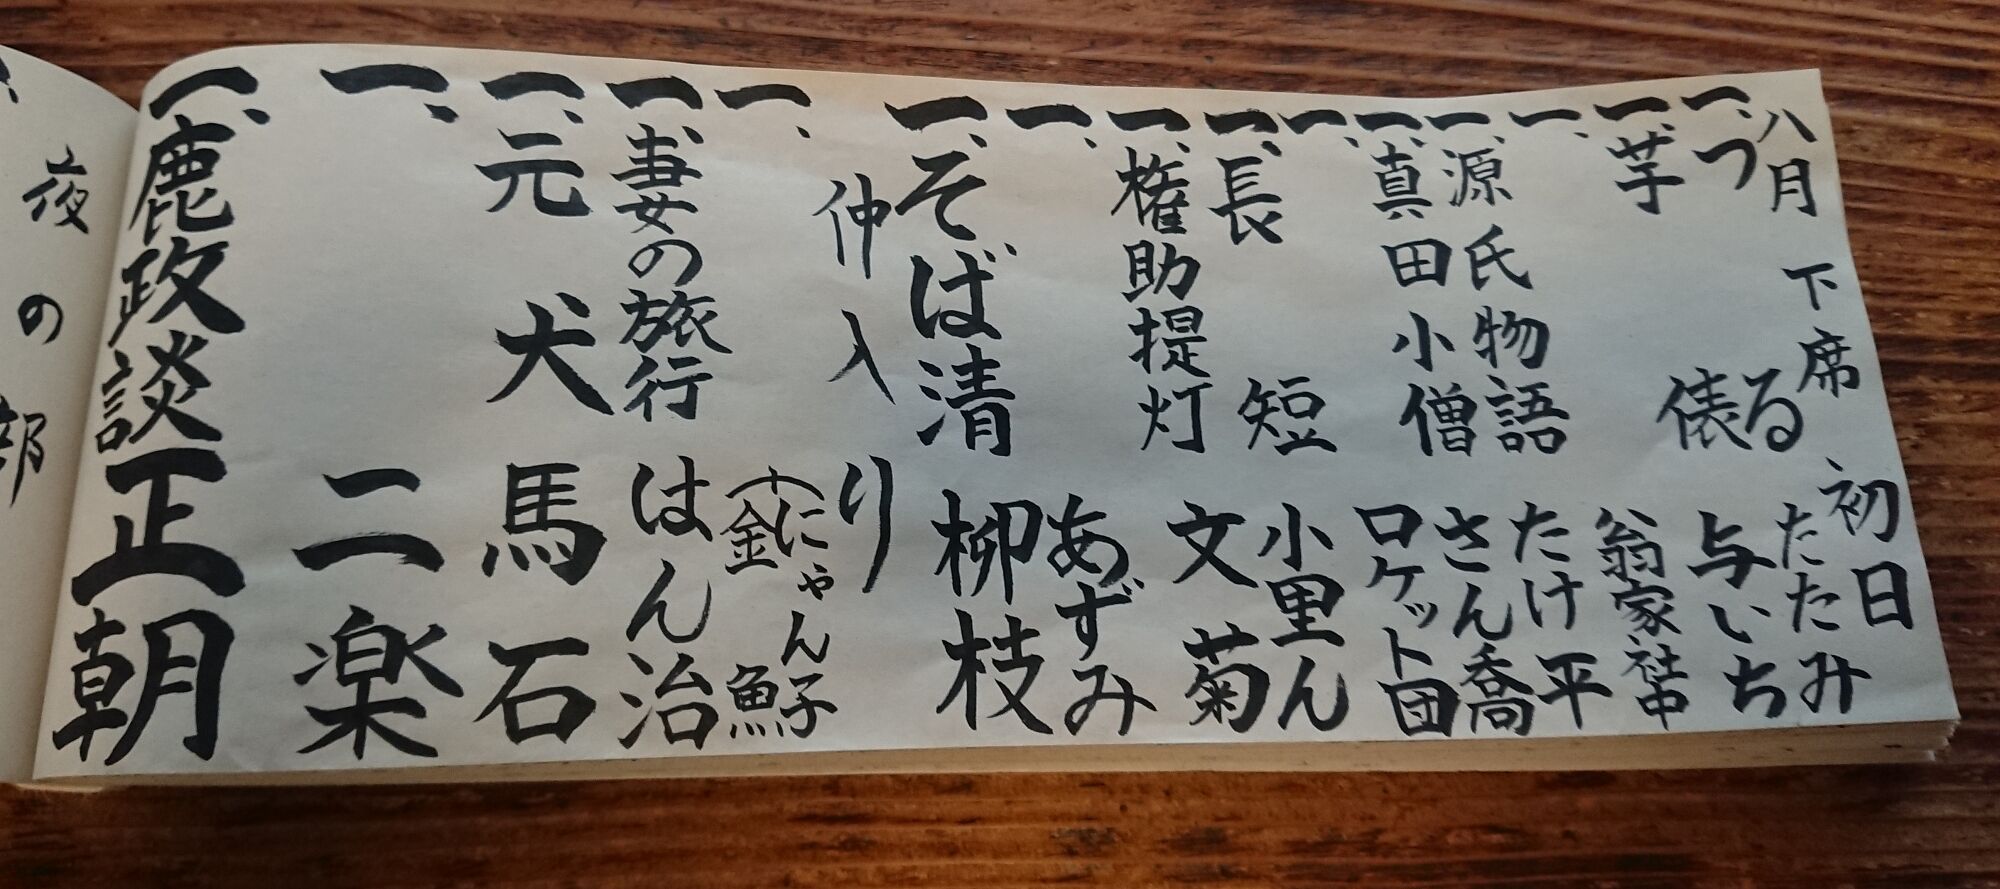 八月 下席 初日
一、つる たたみ
一、芋俵 与いち
一、 翁家社中
一、源氏物語 たけ平
一、真田小僧 さん喬
一、 ロケット団
一、長短 小里ん
一、権助提灯 文菊
一、 あずみ
一、そば清 柳枝
仲入り
一、 (にゃん子 金魚)
一、妻の旅行 はん治
一、元犬 馬石
一、 二楽
一、鹿政談 正朝
夜の部